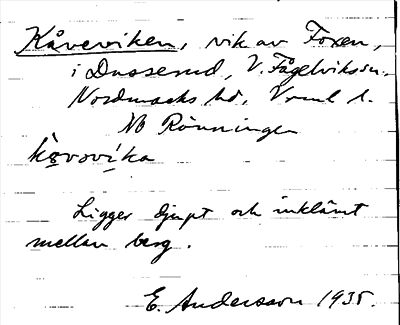 Kåveviken, vik av Foxen,
i Dusserud, V. Fågelvikssn.,
Nordmarks hd, Vrml l.
NO Rönningen
kɷvɷvika
Ligger djupt och inklämt
mellan berg.
E. Andersson 1935.